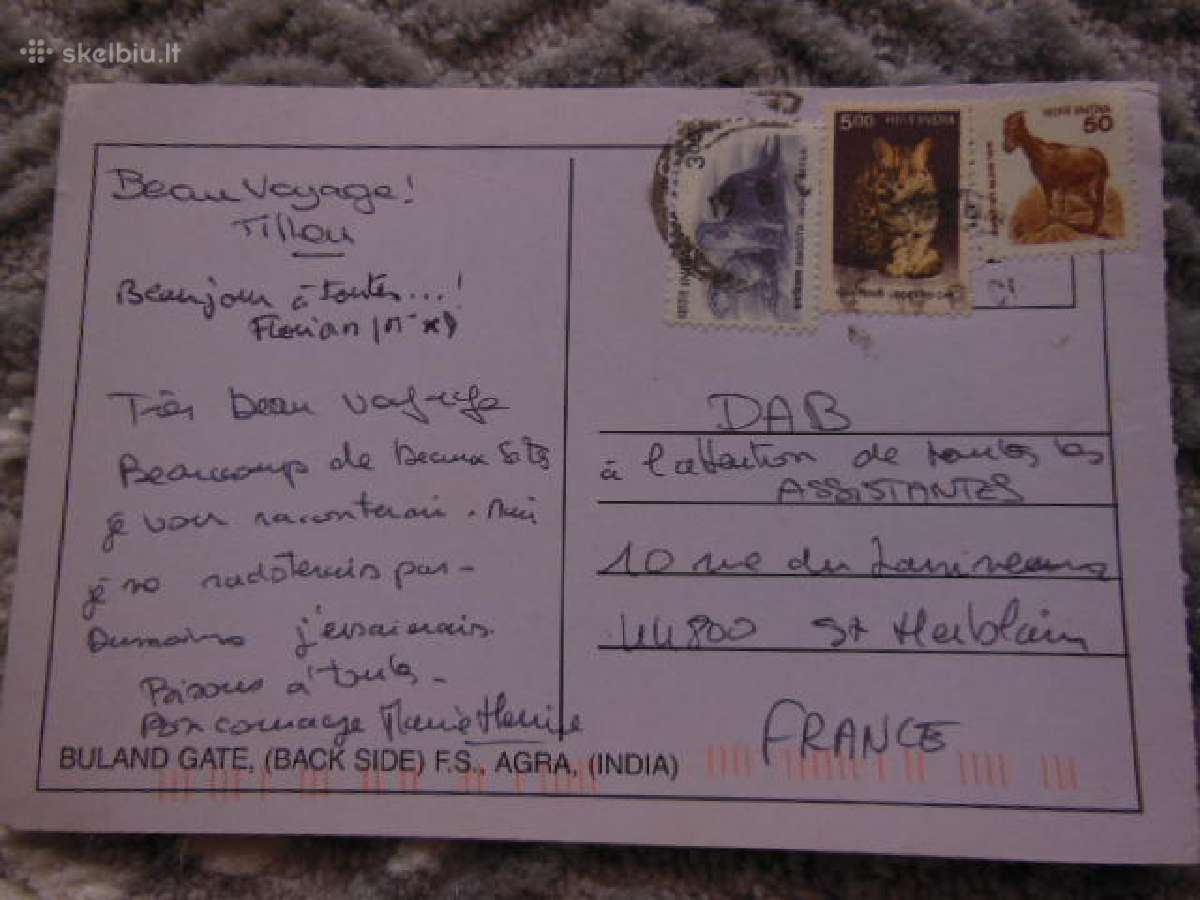 skelbiu.lt
Beau Voyage!
Tillou
Beaujour à toutes...!
Florian
Très beau voyage
Beaucoup de beaux sites
je vous raconterai. Mais
je ne radoterais pas-
Du moins j'essaierais.
Bisous à toutes-
Bon courage Marie
BULAND GATE, (BACK SIDE) F.S., AGRA, (INDIA)
300
5.00 INDIA
INDIA
50
DAB
à l'attention de toutes les
ASSISTANTES
10 rue du
44800 St Herblain
FRANCE